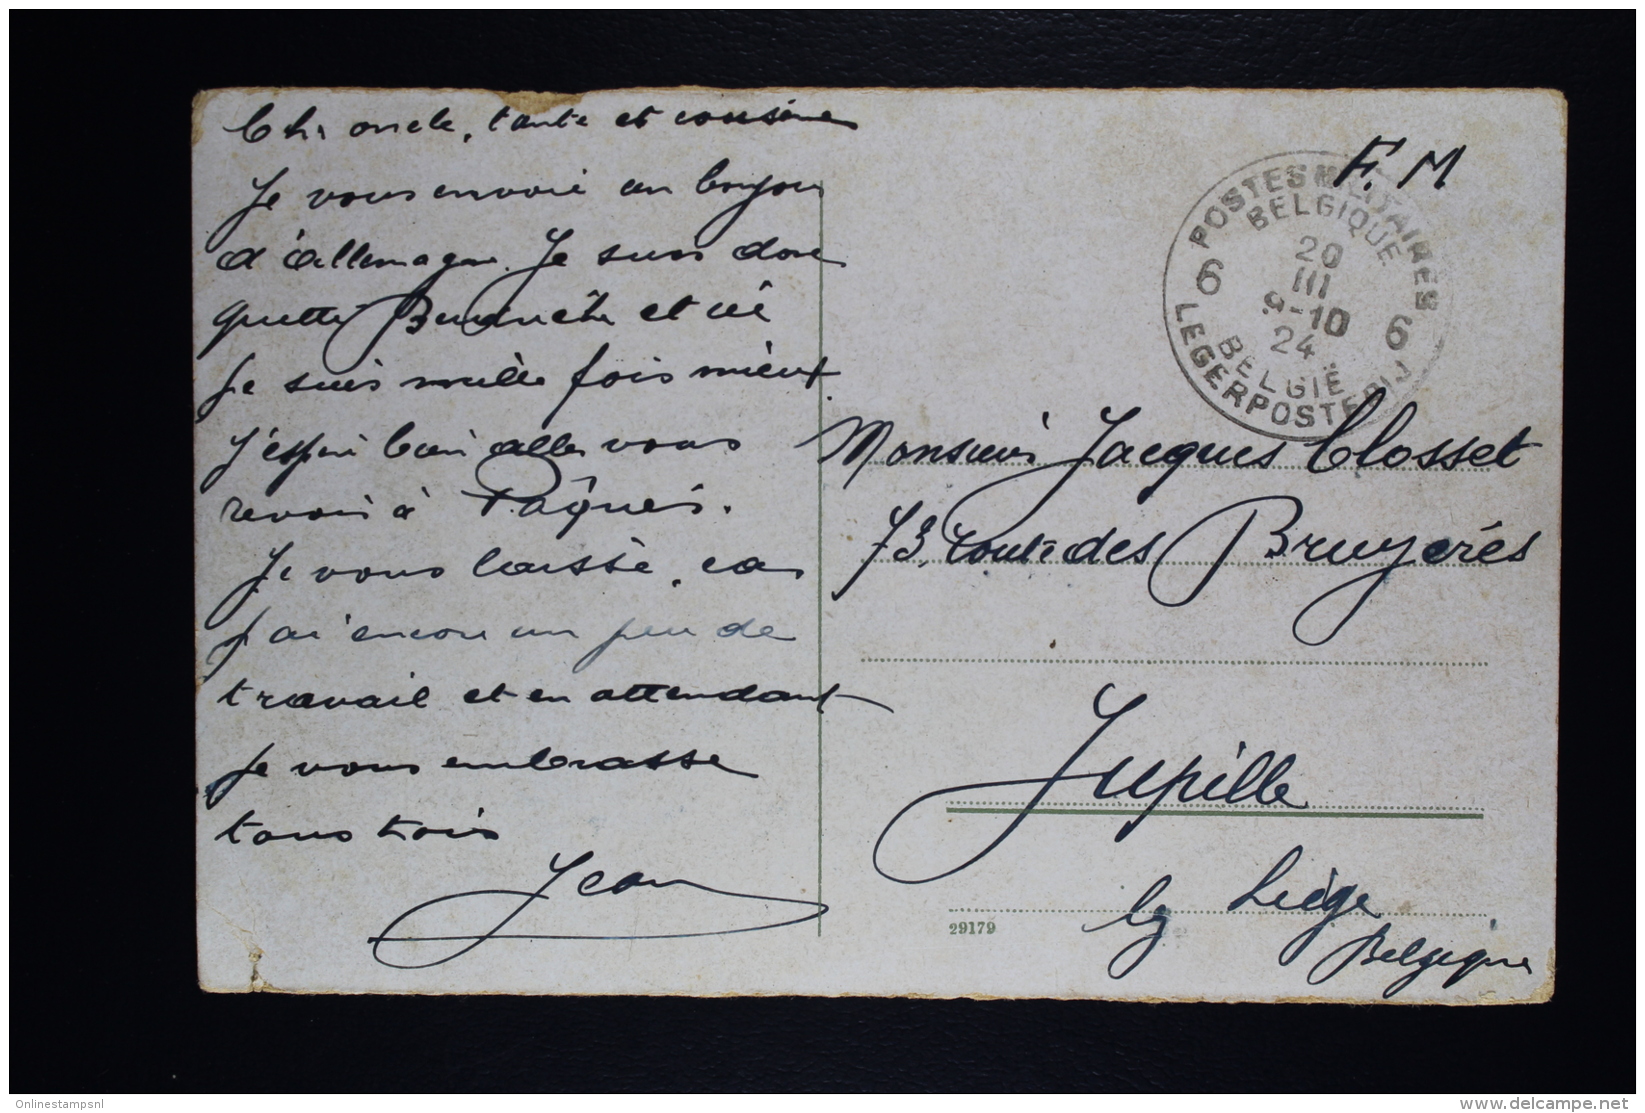 Chr oncle, tante et cousine
Je vous envoie un bonjour
d'allemagne. Je suis donc
quitté et ici
Je suis mille fois mieux.
J'espère bien aller vous
revoir à Pâques.
Je vous laisse, car
j'ai encore un peu de
travail et en attendant
je vous embrasse
tous trois
Jean
F. M
POSTES MILITAIRES
BELGIQUE
20
III
9-10
24
6 6
BELGIË
LEGERPOSTERIJ
Monsieur Jacques Closset
73, route des Bruyerés
Jupille
lg Liège
Belgique
29179
Onlinestampsnl
www.delcampe.net